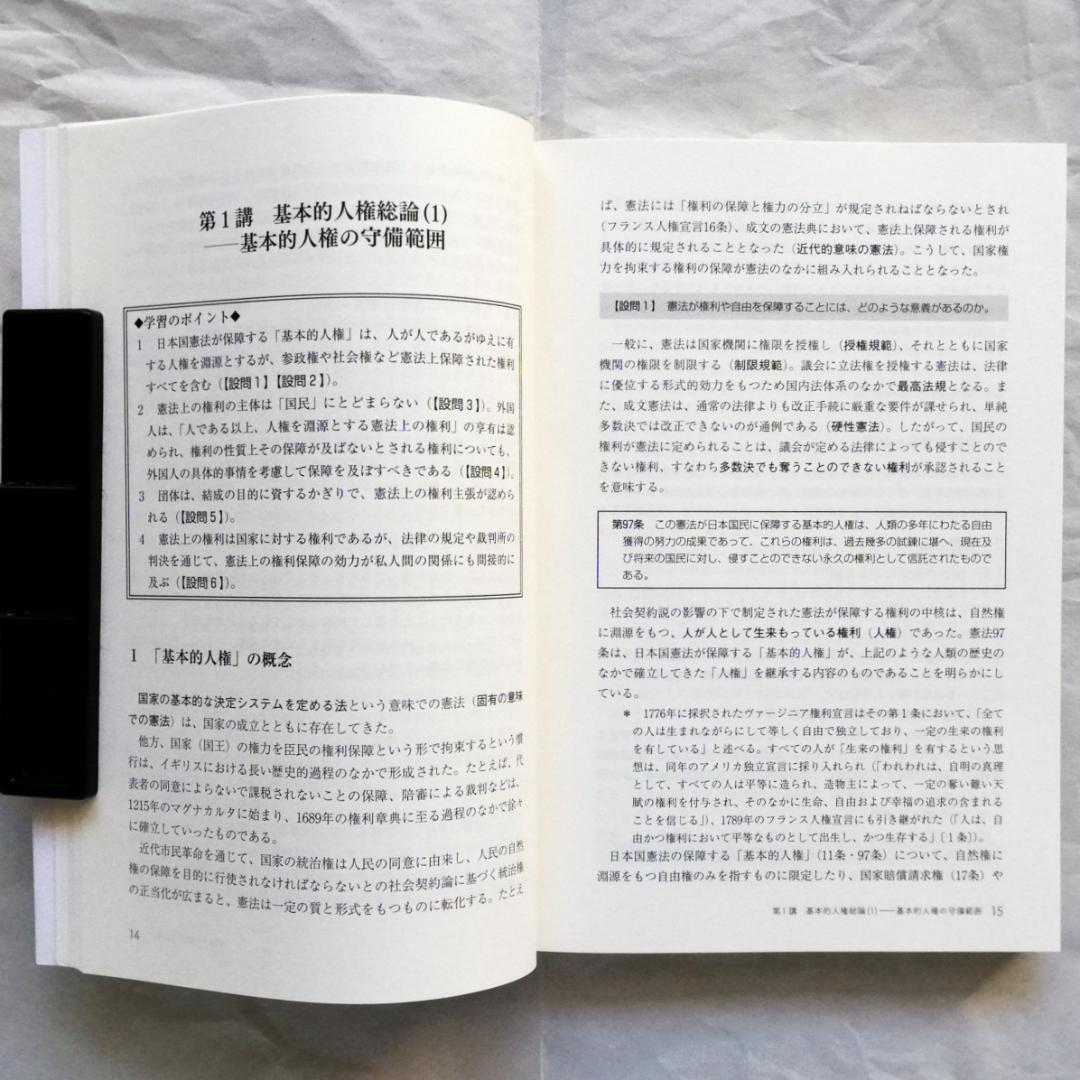 第1講 基本的人権総論(1)
――基本的人権の守備範囲
◆学習のポイント◆
1 日本国憲法が保障する「基本的人権」は、人が人であるがゆえに有
する人権を淵源とするが、参政権や社会権など憲法上保障された権利
すべてを含む(【設問1】【設問2】)。
2 憲法上の権利の主体は「国民」にとどまらない(【設問3】)。外国
人は、「人である以上、人権を淵源とする憲法上の権利」の享有は認
められ、権利の性質上その保障が及ばないとされる権利についても、
外国人の具体的事情を考慮して保障を及ぼすべきである(【設問4】)。
3 団体は、結成の目的に資するかぎりで、憲法上の権利主張が認めら
れる(【設問5】)。
4 憲法上の権利は国家に対する権利であるが、法律の規定や裁判所の
判決を通じて、憲法上の権利保障の効力が私人間の関係にも間接的に
及ぶ(【設問6】)。
Ⅰ 「基本的人権」の概念
国家の基本的な決定システムを定める法という意味での憲法(固有の意味
での憲法)は、国家の成立とともに存在してきた。
他方、国家(国王)の権力を臣民の権利保障という形で拘束するという慣
行は、イギリスにおける長い歴史的過程のなかで形成された。たとえば、代
表者の同意によらないで課税されないことの保障、陪審による裁判などは、
1215年のマグナカルタに始まり、1689年の権利章典に至る過程のなかで徐々
に確立していったものである。
近代市民革命を通じて、国家の統治権は人民の同意に由来し、人民の自然
権の保障を目的に行使されなければならないとの社会契約論に基づく統治権
の正当化が広まると、憲法は一定の質と形式をもつものに転化する。たとえ
14
ば、憲法には「権利の保障と権力の分立」が規定されねばならないとされ
(フランス人権宣言16条)、成文の憲法典において、憲法上保障される権利が
具体的に規定されることとなった(近代的意味の憲法)。こうして、国家権
力を拘束する権利の保障が憲法のなかに組み入れられることとなった。
【設問1】 憲法が権利や自由を保障することには、どのような意義があるのか。
一般に、憲法は国家機関に権限を授権し(授権規範)、それとともに国家
機関の権限を制限する(制限規範)。議会に立法権を授権する憲法は、法律
に優位する形式的効力をもつため国内法体系のなかで最高法規となる。ま
た、成文憲法は、通常の法律よりも改正手続に厳重な要件が課せられ、単純
多数決では改正できないのが通例である(硬性憲法)。したがって、国民の
権利が憲法に定められることは、議会が定める法律によっても侵すことので
きない権利、すなわち多数決でも奪うことのできない権利が承認されること
を意味する。
第97条 この憲法が日本国民に保障する基本的人権は、人類の多年にわたる自由
獲得の努力の成果であって、これらの権利は、過去幾多の試錬に堪へ、現在及
び将来の国民に対し、侵すことのできない永久の権利として信託されたもので
ある。
社会契約説の影響の下で制定された憲法が保障する権利の中核は、自然権
に淵源をもつ、人が人として生来もっている権利(人権)であった。憲法97
条は、日本国憲法が保障する「基本的人権」が、上記のような人類の歴史の
なかで確立してきた「人権」を継承する内容のものであることを明らかにし
ている。
* 1776年に採択されたヴァージニア権利宣言はその第1条において、「全て
の人は生まれながらにして等しく自由で独立しており、一定の生来の権利
を有している」と述べる。すべての人が「生来の権利」を有するという思
想は、同年のアメリカ独立宣言に採り入れられ(「われわれは、自明の真理
として、すべての人は平等に造られ、造物主によって、一定の奪い難い天
賦の権利を付与され、そのなかに生命、自由および幸福の追求の含まれる
ことを信じる」)、1789年のフランス人権宣言にも引き継がれた(「人は、自
由かつ権利において平等なものとして出生し、かつ生存する」〔1条〕)。
日本国憲法の保障する「基本的人権」(11条・97条)について、自然権に
淵源をもつ自由権のみを指すものに限定したり、国家賠償請求権(17条)や
第1講 基本的人権総論(1)――基本的人権の守備範囲 15